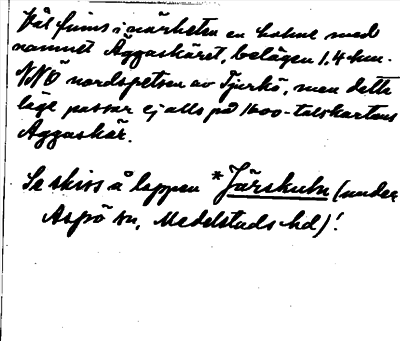 Väl finns i närheten en holme med
namnet Äggaskäret, belägen 1,4 km.
NNÖ nordspetsen av Tjurkö, men detta
läge passar ej alls på 1600-talskartans
Äggaskär.
Se skiss å lappen *Järskuln (under
Aspö sn, Medelstads hd)!